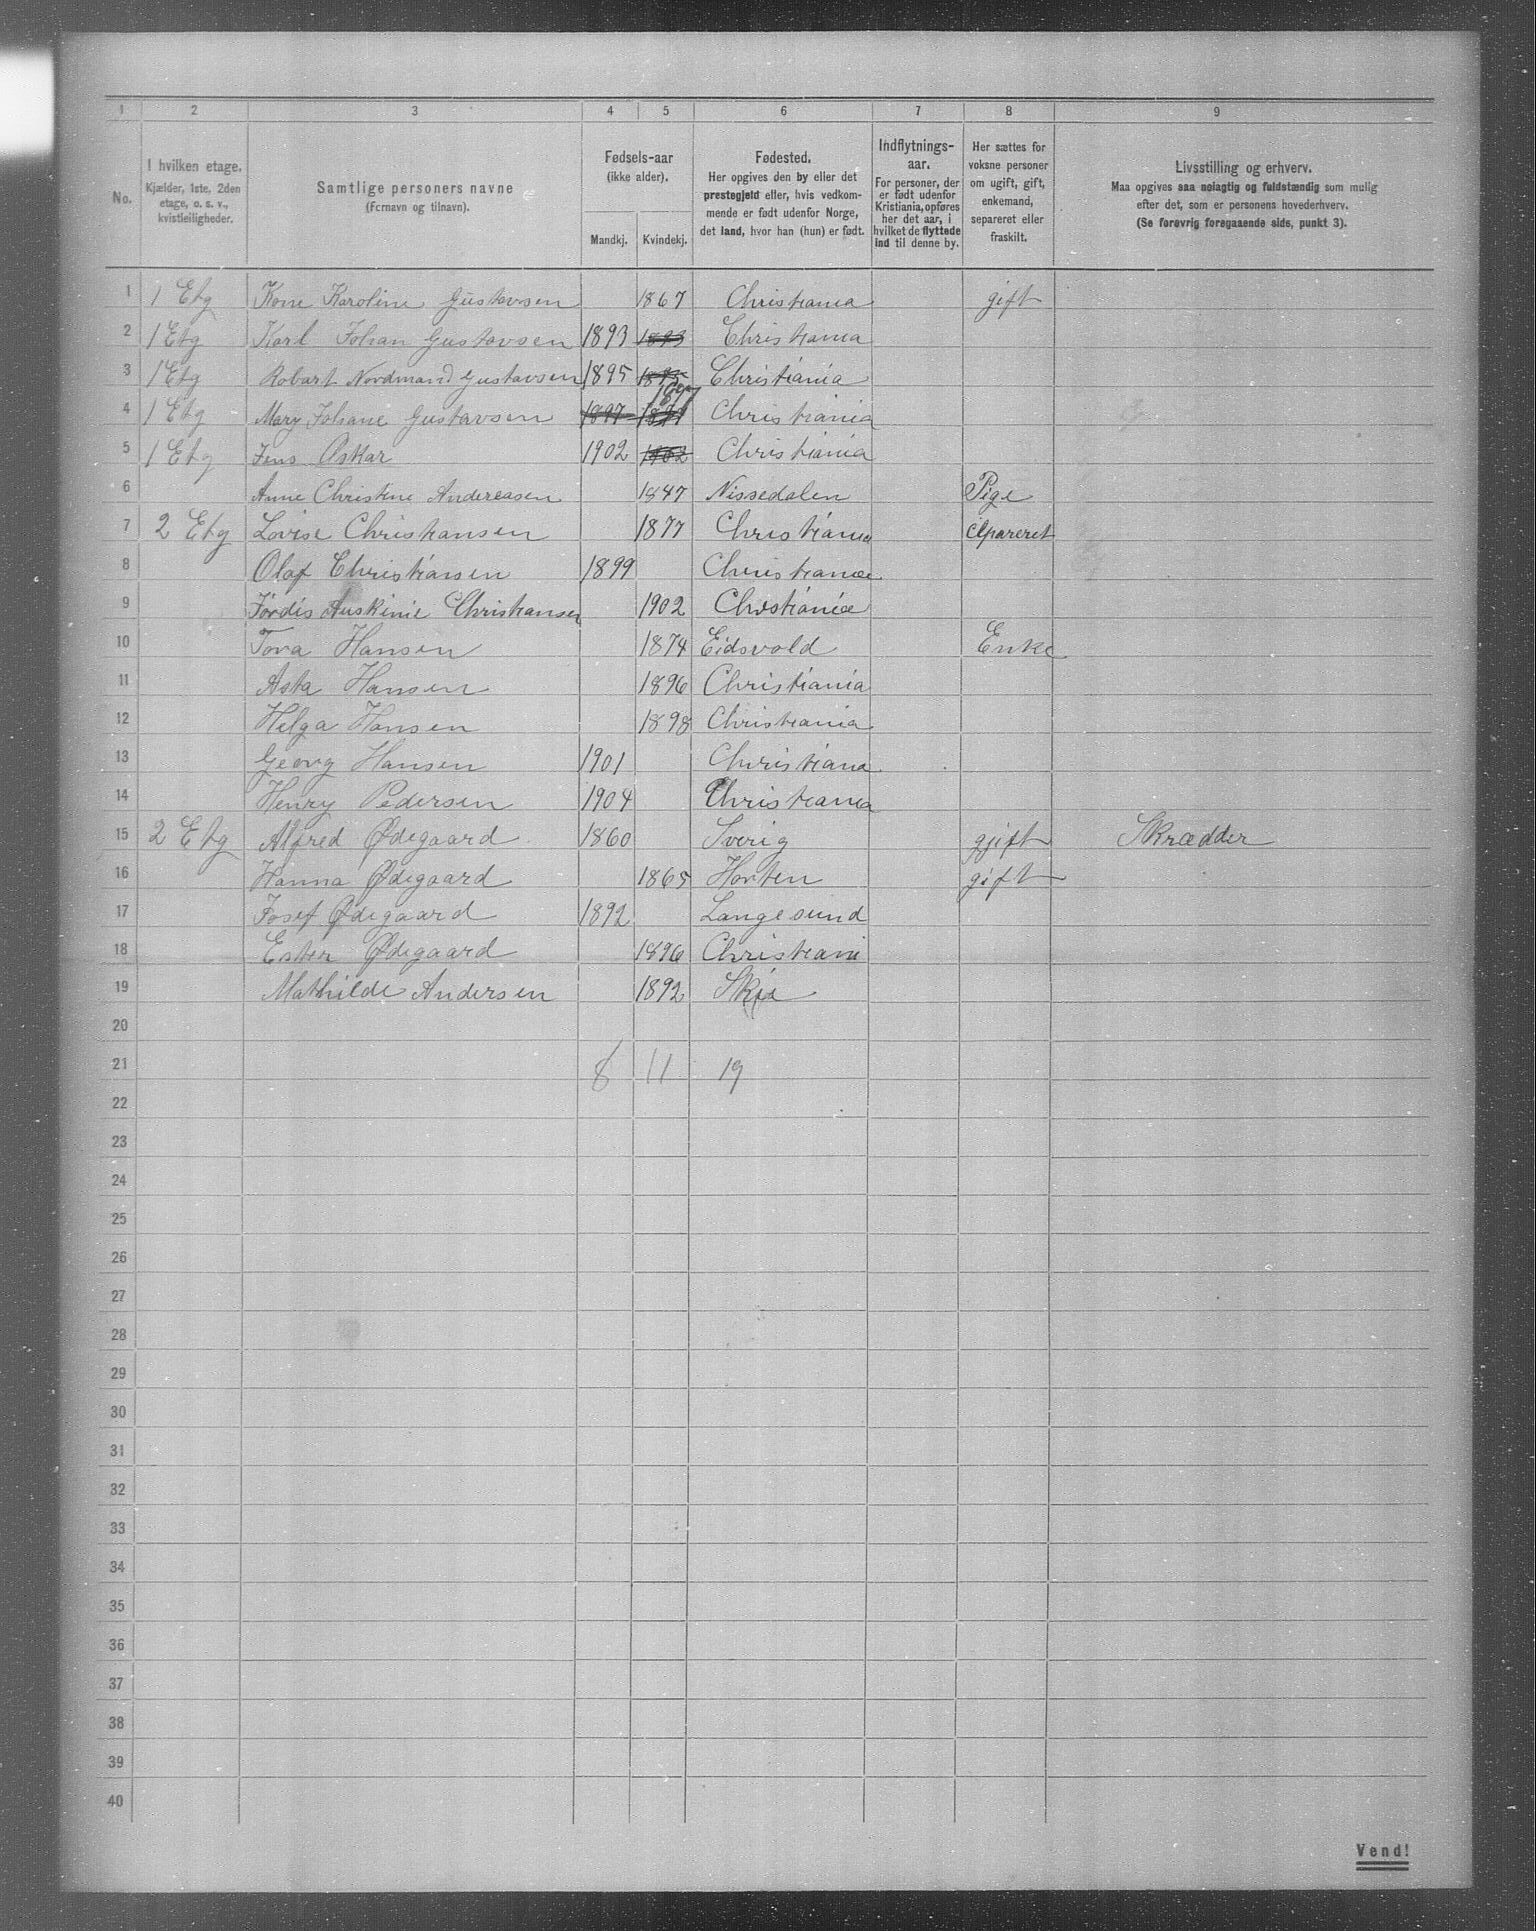 1 2 3 4 5 6 7 8 9
No.
I hvilken etage.
Kjælder, 1ste, 2den
etage, o. s. v.,
kvistleiligheder.
Samtlige personers navne
(Fornavn og tilnavn).
Fødsels-aar
(ikke alder).
Mandkj. Kvindekj.
Fødested.
Her opgives den by eller det
prestegjeld eller, hvis vedkom-
mende er født udenfor Norge,
det land, hvor han (hun) er født.
Indflytnings-
aar.
For personer, der
er født udenfor
Kristiania, opføres
her det aar, i
hvilket de flyttede
ind til denne by.
Her sættes for
voksne personer
om ugift, gift,
enkemand,
separeret eller
fraskilt.
Livsstilling og erhverv.
Maa opgives saa nøiagtig og fuldstændig som mulig
efter det, som er personens hovederhverv.
(Se forøvrig foregaaende side, punkt 3).
1 1 Etg Kone Karoline Gustavsen 1867 Christiania gift
2 1 Etg Karl Johan Gustavsen 1893 1893 Christiania
3 1 Etg Robart Nordmand Gustavsen 1895 1895 Christiania
4 1 Etg Mary Johane Gustavsen 1897 1897 1897 Christiania
5 1 Etg Jens Oskar 1902 1902 Christiania
6 Anne Christine Andereasen 1847 Nissedalen Pige
7 2 Etg Lovise Christiansen 1877 Christiania
8 Olaf Christiansen 1899 Christiania
9 Jørdis Christiansen 1902 Chrstiania
10 Tora Hansen 1874 Eidsvold Enke
11 Asta Hansen 1896 Christiania
12 Helga Hansen 1898 Christiania
13 Georg Hansen 1901 Christiana
14 Henry Pedersen 1904 Christiania
15 2 Etg Alfred Ødegaard 1860 Sverig gjift Skrædder
16 Hanna Ødegaard 1865 Horten gift
17 Josef Ødegaard 1892 Langesund
18 Ester Ødegaard 1896 Christiani
19 Mathilde Andersen 1892 Ski
20
21 8 11 19
22
23
24
25
26
27
28
29
30
31
32
33
34
35
36
37
38
39
40
Vend!